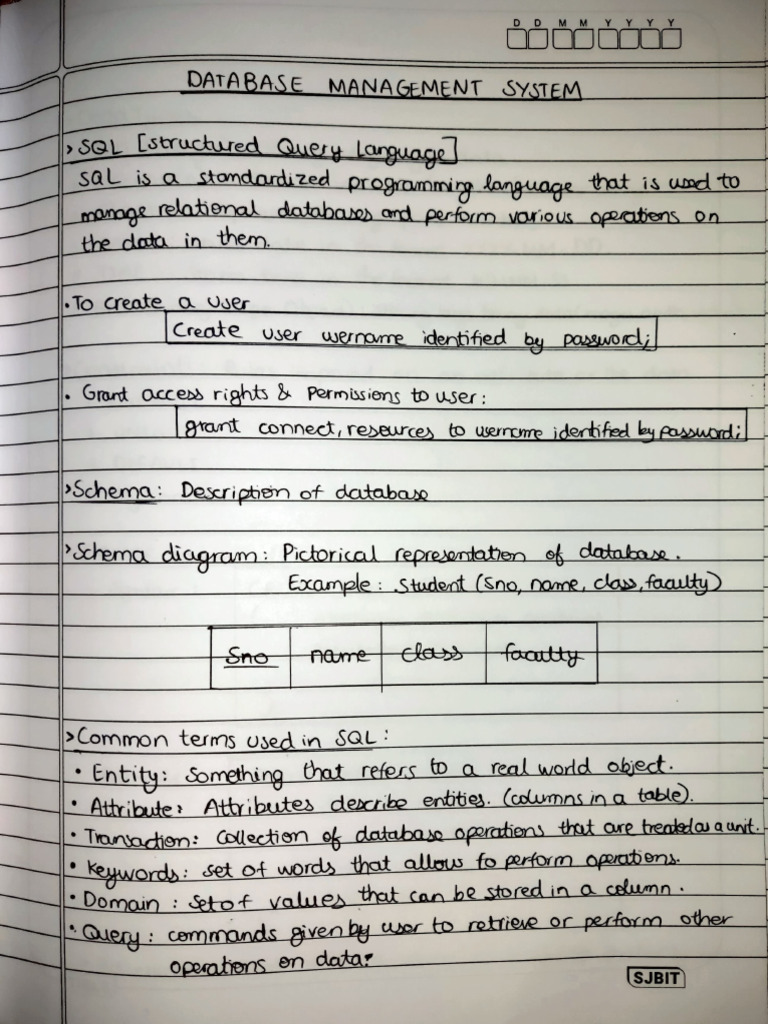 D D M M Y Y Y Y
DATABASE MANAGEMENT SYSTEM
> SQL [Structured Query Language]
SQL is a standardized programming language that is used to
manage relational databases and perform various operations on
the data in them.
• To create a user
Create user username identified by password;
• Grant access rights & Permissions to user:
grant connect, resources to username identified by password;
> Schema: Description of database
> Schema diagram: Pictorical representation of database.
Example: Student (Sno, name, class, faculty)
Sno name class faculty
> Common terms used in SQL:
• Entity: Something that refers to a real world object.
• Attribute: Attributes describe entities. (columns in a table).
• Transaction: Collection of database operations that are treated as a unit.
• Keywords: set of words that allows to perform operations.
• Domain: set of values that can be stored in a column.
• Query: commands given by user to retrieve or perform other
operations on data.
SJBIT